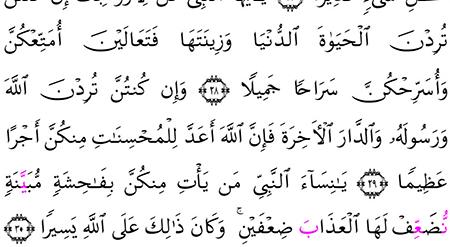 تُرِدْنَ ٱلْحَيَوٰةَ ٱلدُّنْيَا وَزِينَتَهَا فَتَعَالَيْنَ أُمَتِّعْكُنَّ
وَأُسَرِّحْكُنَّ سَرَاحًا جَمِيلًا ۝٢٨ وَإِن كُنتُنَّ تُرِدْنَ ٱللَّهَ
وَرَسُولَهُۥ وَٱلدَّارَ ٱلْأَخِرَةَ فَإِنَّ ٱللَّهَ أَعَدَّ لِلْمُحْسِنَٰتِ مِنكُنَّ أَجْرًا
عَظِيمًا ۝٢٩ يَٰنِسَآءَ ٱلنَّبِىِّ مَن يَأْتِ مِنكُنَّ بِفَٰحِشَةٍ مُّبَيَّنَةٍ
نُّضَعِّفْ لَهَا ٱلْعَذَابَ ضِعْفَيْنِ ۚ وَكَانَ ذَٰلِكَ عَلَى ٱللَّهِ يَسِيرًا ۝٣٠